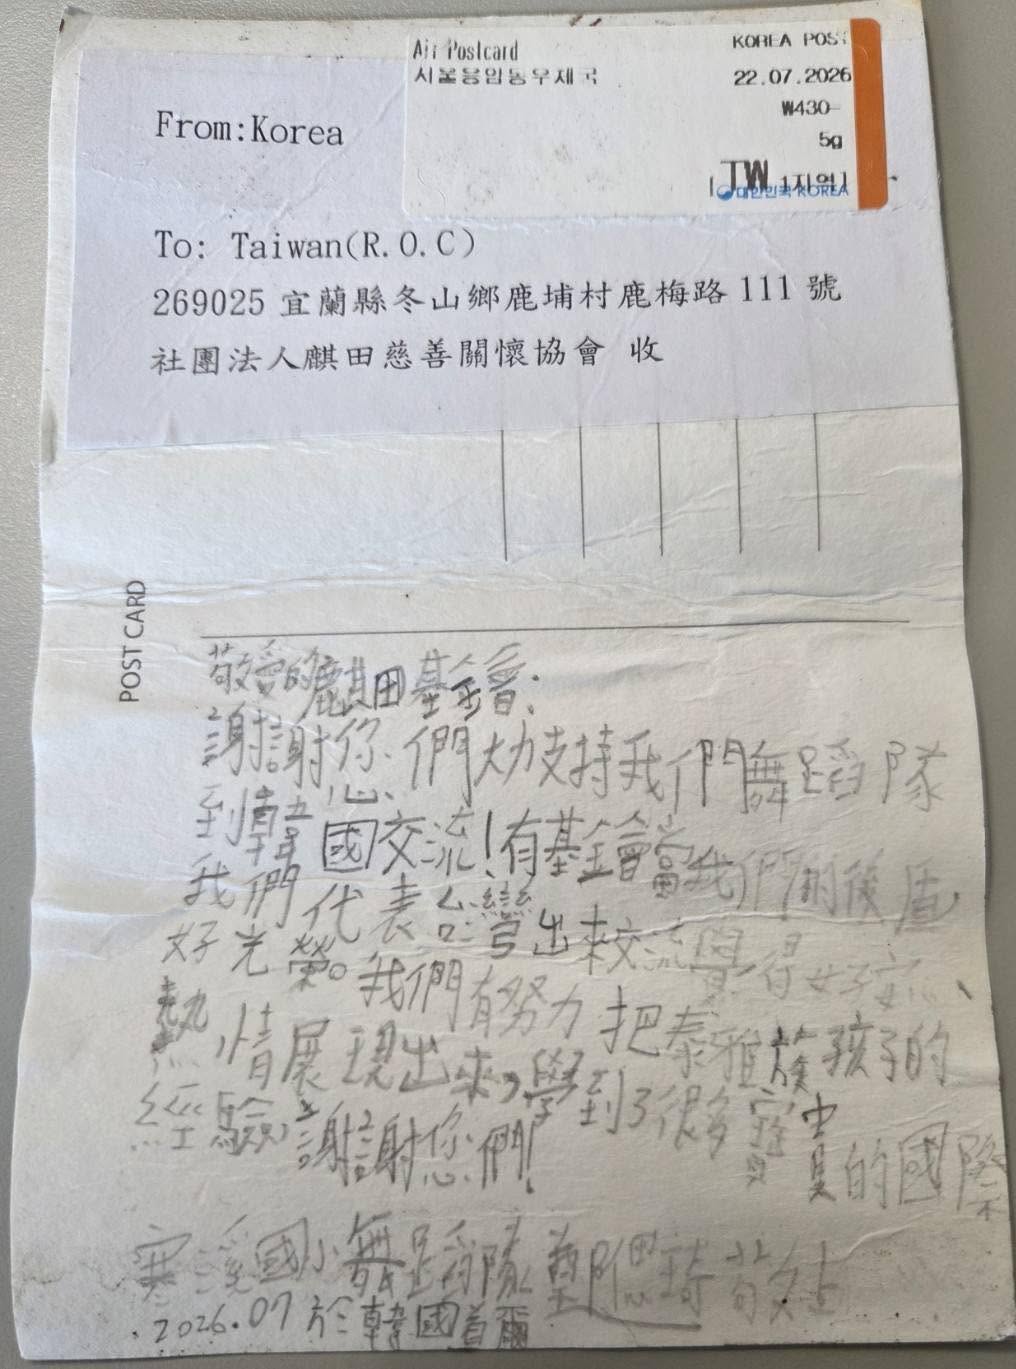 Air Postcard
서울용암동우체국
KOREA POST
22.07.2026
₩430-
5g
TW 1지역
대한민국 KOREA
From:Korea
To: Taiwan(R.O.C)
269025 宜蘭縣冬山鄉鹿埔村鹿梅路 111 號
社團法人麒田慈善關懷協會 收
POST CARD
敬愛的麒田基金會:
謝謝您們大力支持我們舞蹈隊
到韓國交流!有基金會當我們的後盾
我們代表台灣出來交流覺得好
好光榮。我們有努力把泰雅族孩子的
熱情展現出來,學到了很多寶貴的國際
經驗,謝謝您們!
寒溪國小舞蹈隊 敬上
2026.07 於韓國首爾